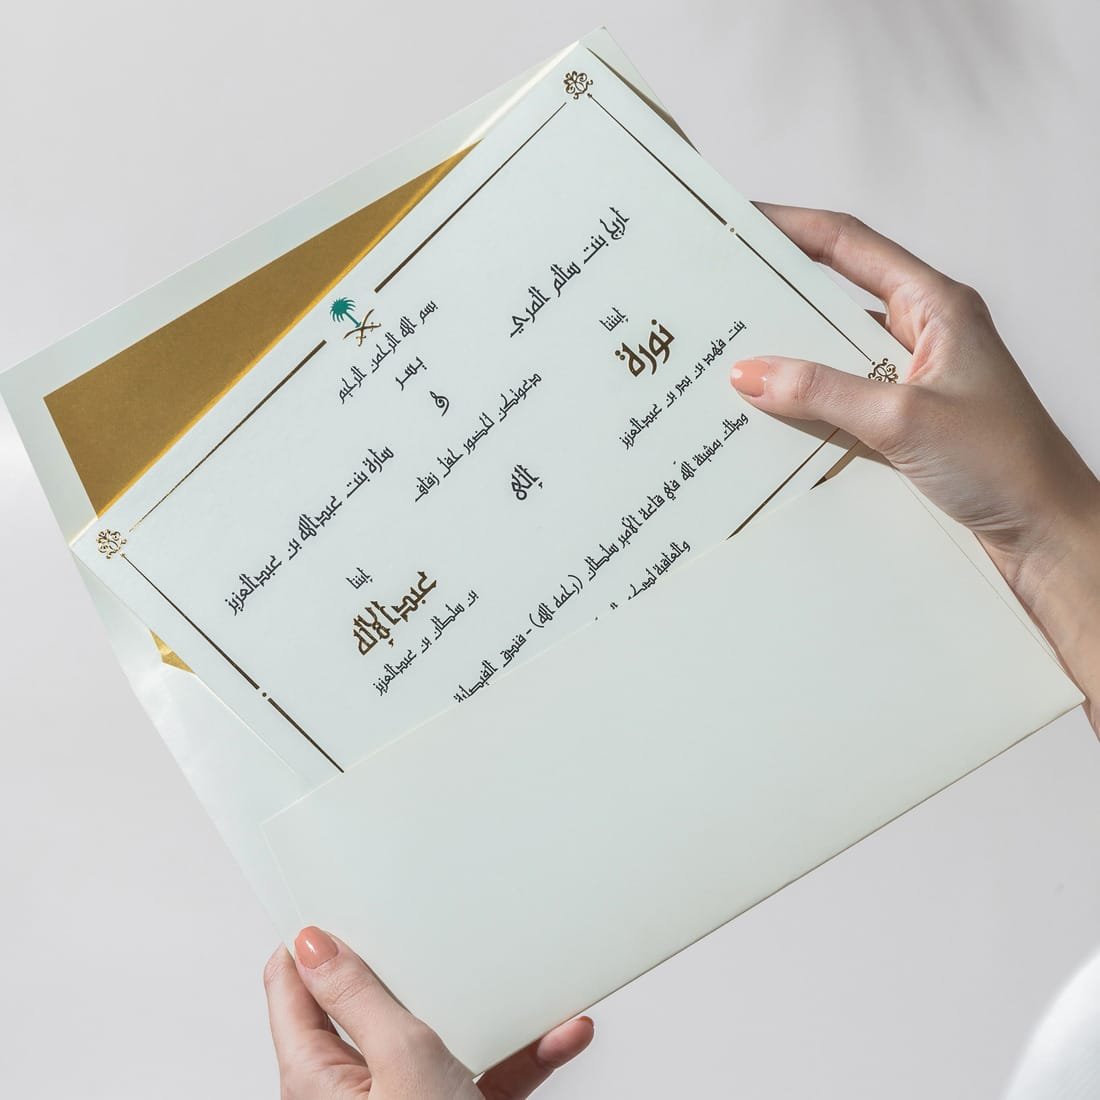 بسم الله الرحمن الرحيم
يسر
أريج بنت سالم المري
و
سارة بنت عبدالله بن عبدالعزيز
دعوتكن لحضور حفل زفاف
إبنتنا
نورة
بنت فهد بن بدر بن عبدالعزيز
إلى
إبننا
عبدالإله
بن سلطان بن عبدالعزيز
وذلك بمشيئة الله في قاعة الأمير سلطان (رحمه الله) - فندق الفيصلية
والعاقبة